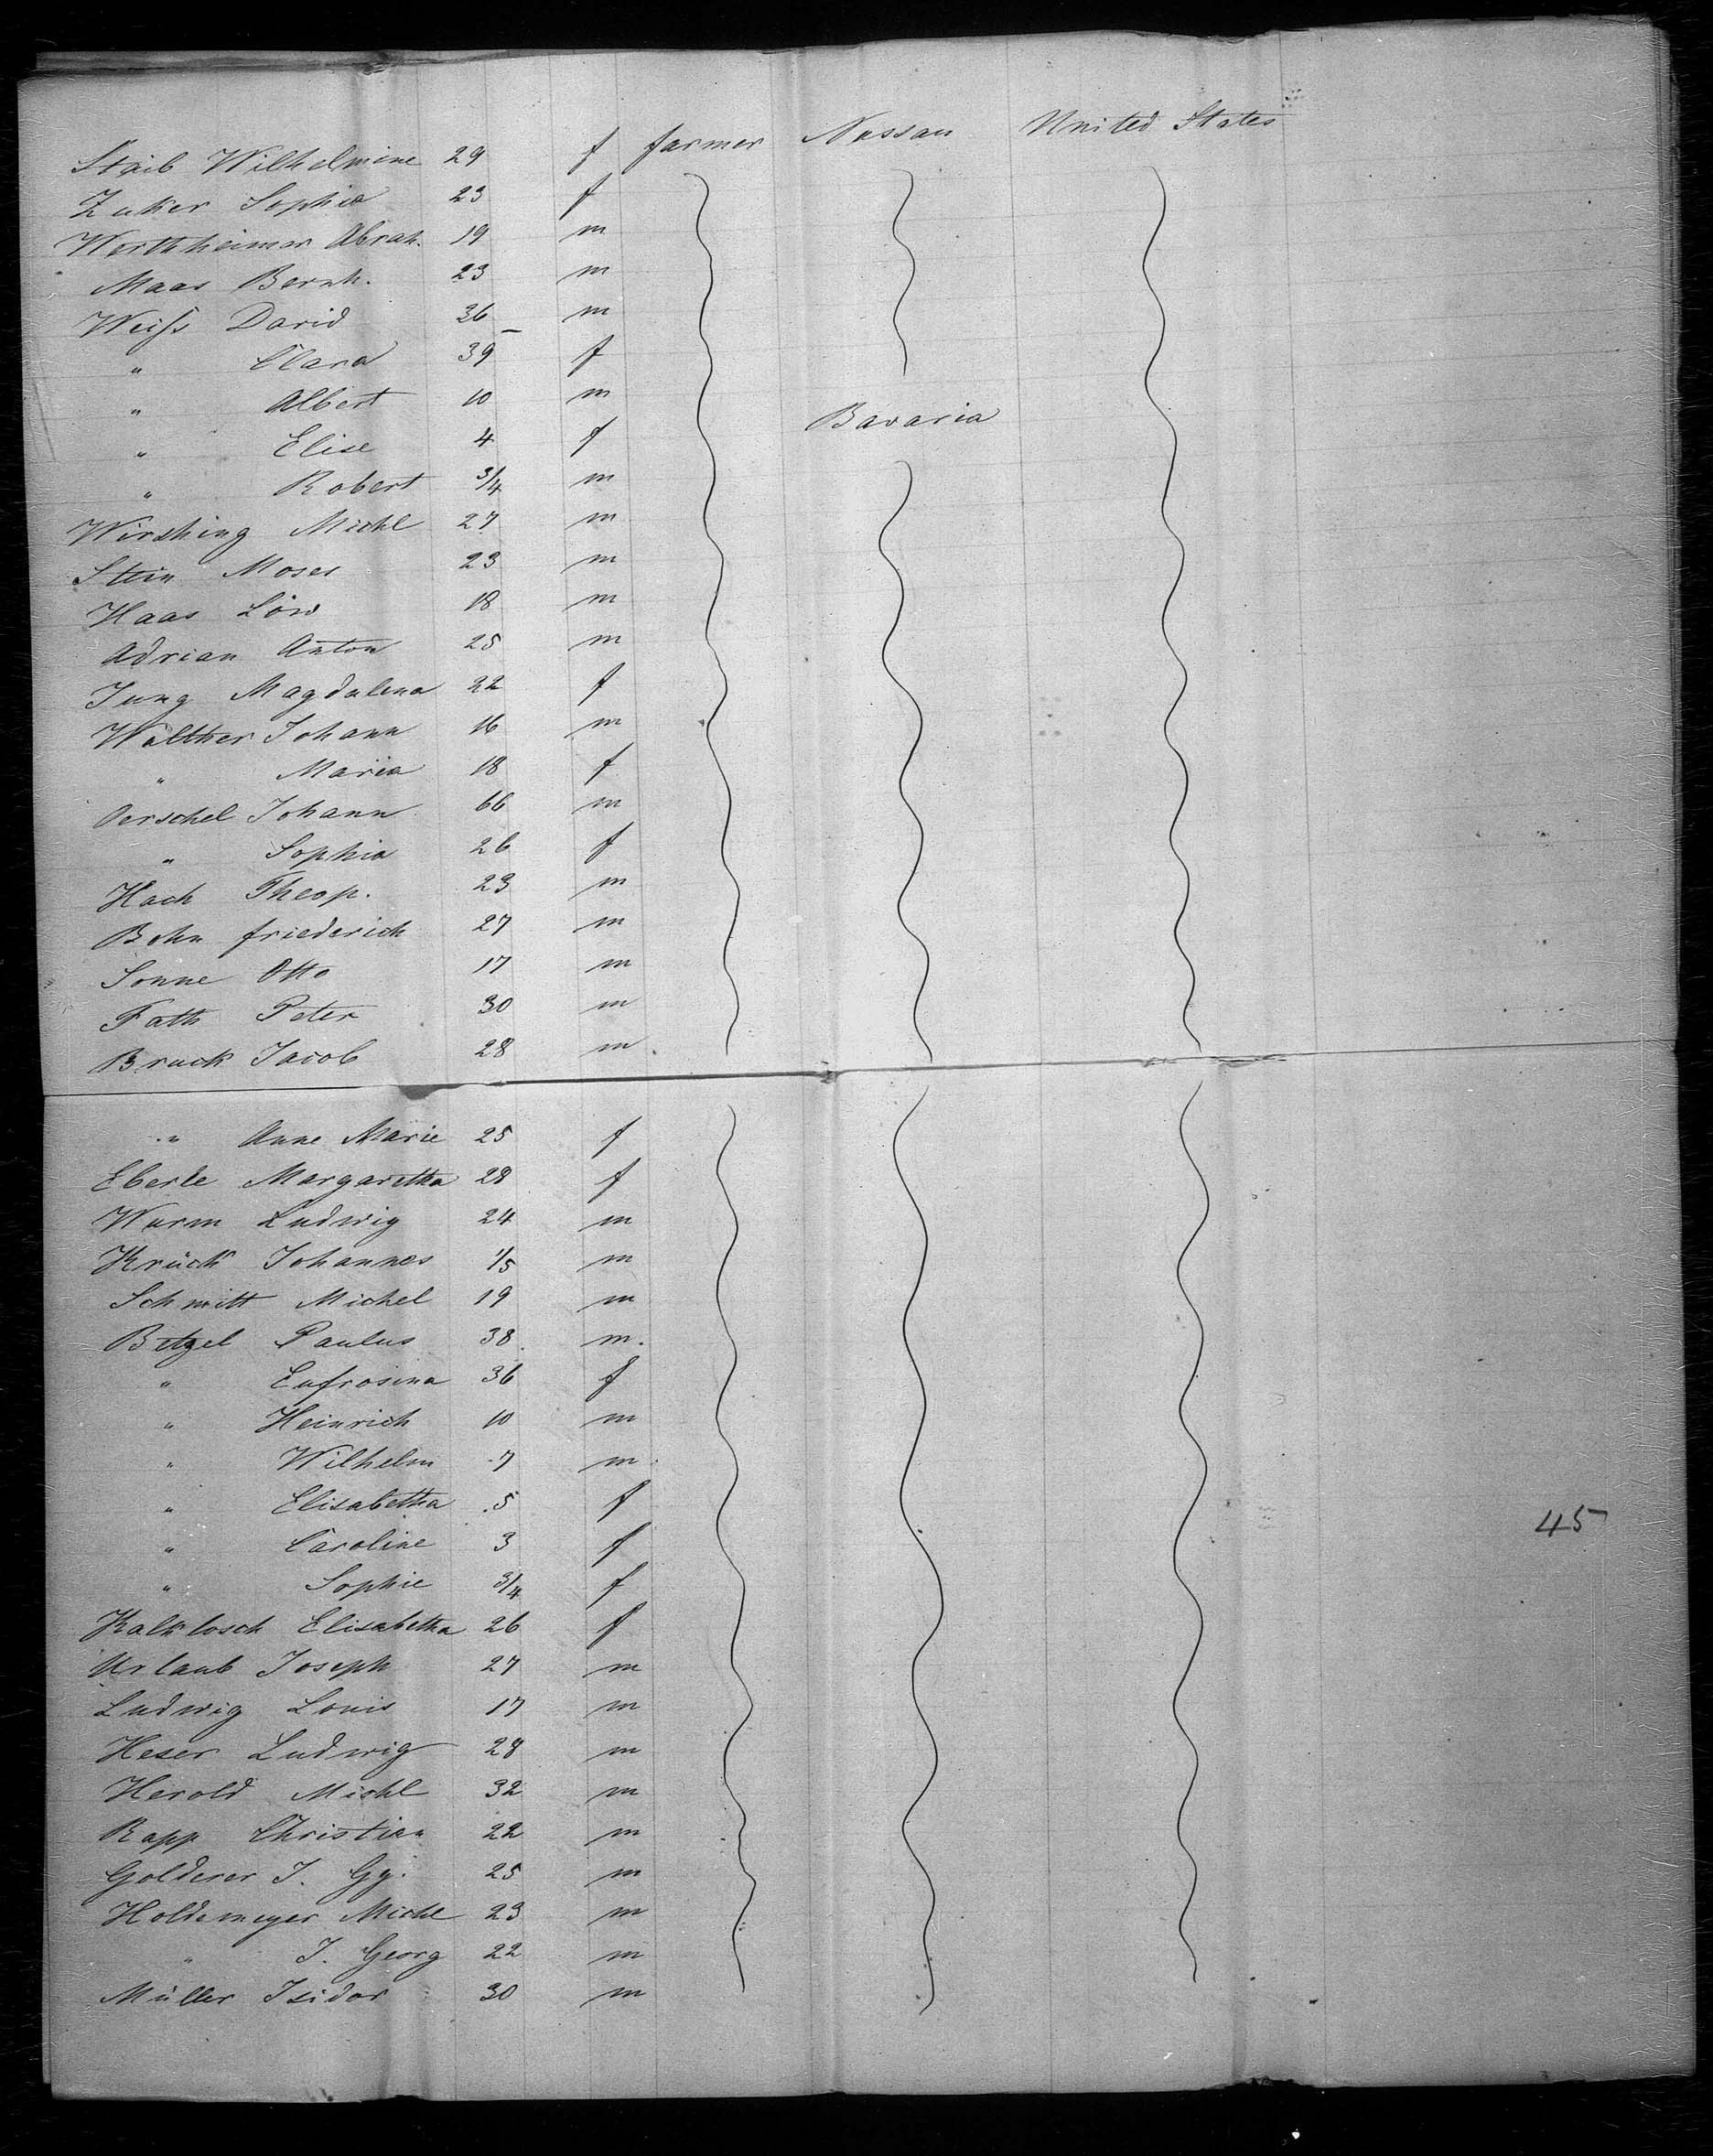 Staib Wilhelmine 29 f farmer Nassau United States
Zuker Sophia 23 f
Werthheimer Abrah. 19 m
Maas Bernh. 23 m
Weiß David 36 m
" Clara 39 f
" Albert 10 m
Bavaria
" Elise 4 f
" Robert 3/4 m
Wirshing Michl 27 m
Stein Moses 23 m
Haas Löw 18 m
Adrian Anton 25 m
Jung Magdalena 22 f
Walther Johann 16 m
" Maria 18 f
Oerschel Johann 66 m
" Sophia 26 f
Hach Theop. 23 m
Bohn friederich 27 m
Sonne Otto 17 m
Fath Peter 30 m
Bruck Jacob 28 m
" Anne Marie 25 f
Eberle Margaretha 28 f
Wurm Ludwig 24 m
Krück Johannes 1/5 m
Schmitt Michel 19 m
Betzel Paulus 38 m.
" Eufrosina 36 f
" Heinrich 10 m
" Wilhelm 7 m
" Elisabetha 5 f
45
" Caroline 3 f
" Sophie 3/4 f
Kalklosch Elisabetha 26 f
Urlaub Joseph 27 m
Ludwig Louis 17 m
Heser Ludwig 28 m
Herold Michl 32 m
Rapp Christian 22 m
Golderer J. Gg. 25 m
Holdemeyer Michl 23 m
" J. Georg 22 m
Müller Isidor 30 m